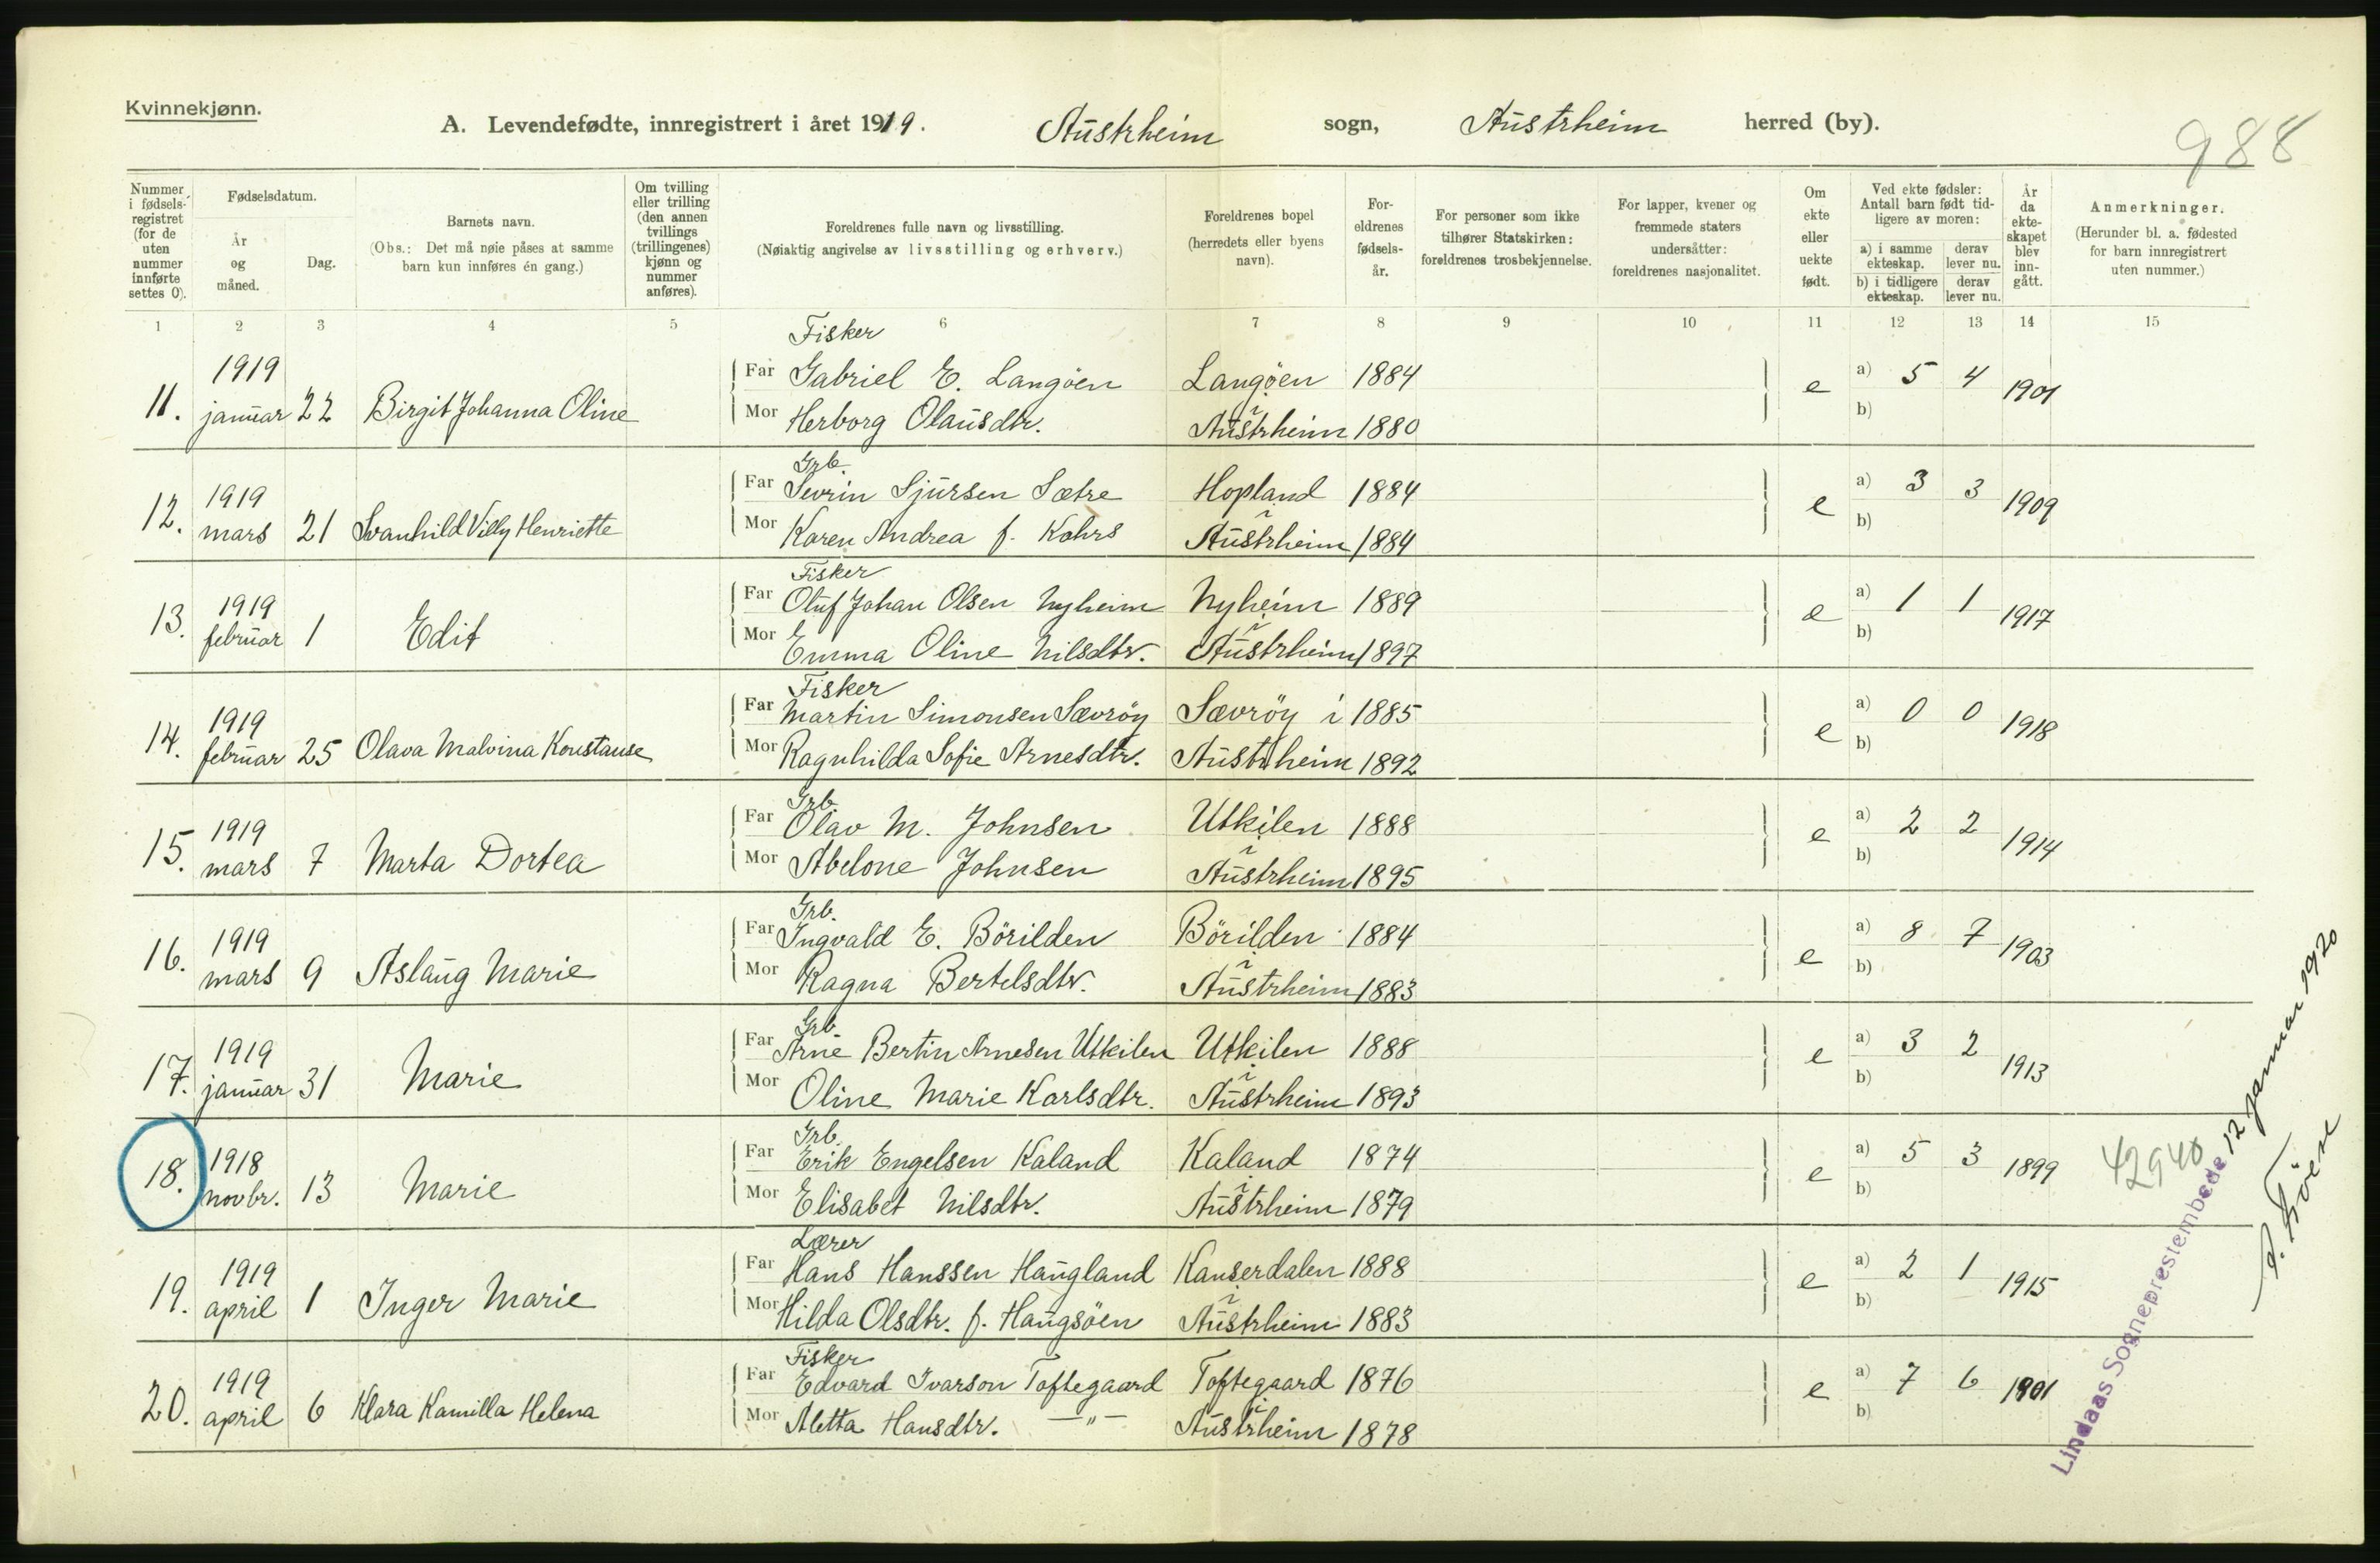 Kvinnekjønn.
A. Levendefødte, innregistrert i året 1919. Austrheim sogn, Austrheim herred (by).
988
Nummer i fødsels-registret (for de uten nummer innførte settes 0).
Fødselsdatum.
År og måned.
Dag.
Barnets navn.
(Obs.: Det må nøie påses at samme barn kun innføres én gang.)
Om tvilling eller trilling (den annen tvillings (trillingenes) kjønn og nummer anføres).
Foreldrenes fulle navn og livsstilling.
(Nøiaktig angivelse av livsstilling og erhverv.)
Foreldrenes bopel (herredets eller byens navn).
For-eldrenes fødsels-år.
For personer som ikke tilhører Statskirken: foreldrenes trosbekjennelse.
For lapper, kvener og fremmede staters undersåtter: foreldrenes nasjonalitet.
Om ekte eller uekte født.
Ved ekte fødsler: Antall barn født tid-ligere av moren:
a) i samme ekteskap. derav lever nu.
b) i tidligere ekteskap. derav lever nu.
År da ekte-skapet blev inn-gått.
Anmerkninger.
(Herunder bl. a. fødested for barn innregistrert uten nummer.)
1 2 3 4 5 6 7 8 9 10 11 12 13 14 15
Fisker
1919 Far Gabriel E. Langöen Langöen 1884 e a) 5 4 1901
11. januar 22 Birgit Johanna Oline Mor Herborg Olausdtr. i Austrheim 1880 b)
Grb.
1919 Far Sevrin Sjursen Sætre Hopland 1884 e a) 3 3 1909
12. mars 21 Svanhild Villy Henriette Mor Karen Andrea f. Kohrs i Austrheim 1884 b)
Fisker
1919 Far Oluf Johan Olsen Nyheim Nyheim 1889 e a) 1 1 1917
13. februar 1 Edit Mor Emma Oline Nilsdtr. i Austrheim 1897 b)
Fisker
1919 Far Martin Simonsen Sævröy Sævröy i 1885 e a) 0 0 1918
14. februar 25 Olava Malvina Konstanse Mor Ragnhilda Sofie Arnesdtr. Austrheim 1892 b)
Grb.
1919 Far Olav M. Johnsen Utkilen 1888 e a) 2 2 1914
15. mars 7 Marta Dortea Mor Abelone Johnsen i Austrheim 1895 b)
Grb.
1919 Far Ingvald E. Börilden Börilden 1884 e a) 8 7 1903
16. mars 9 Aslaug Marie Mor Ragna Bertelsdtr. i Austrheim 1883 b)
Grb.
1919 Far Arne Bertin Arnesen Utkilen Utkilen 1888 e a) 3 2 1913
17. januar 31 Marie Mor Oline Marie Karlsdtr. i Austrheim 1893 b)
Grb.
1918 Far Erik Engelsen Kaland Kaland 1874 e a) 5 3 1899 42940
18. novbr. 13 Marie Mor Elisabet Nilsdtr. i Austrheim 1879 b)
Lærer
1919 Far Hans Hanssen Haugland Kanserdalen 1888 e a) 2 1 1915
19. april 1 Inger Marie Mor Hilda Olsdtr. f. Haugsöen i Austrheim 1883 b)
Fisker
1919 Far Edvard Ivarson Toftegaard Toftegaard 1876 e a) 7 6 1901
20. april 6 Klara Kamilla Helena Mor Aletta Hansdtr. —"— i Austrheim 1878 b)
Lindaas Sogneprestembede 12 januar 1920